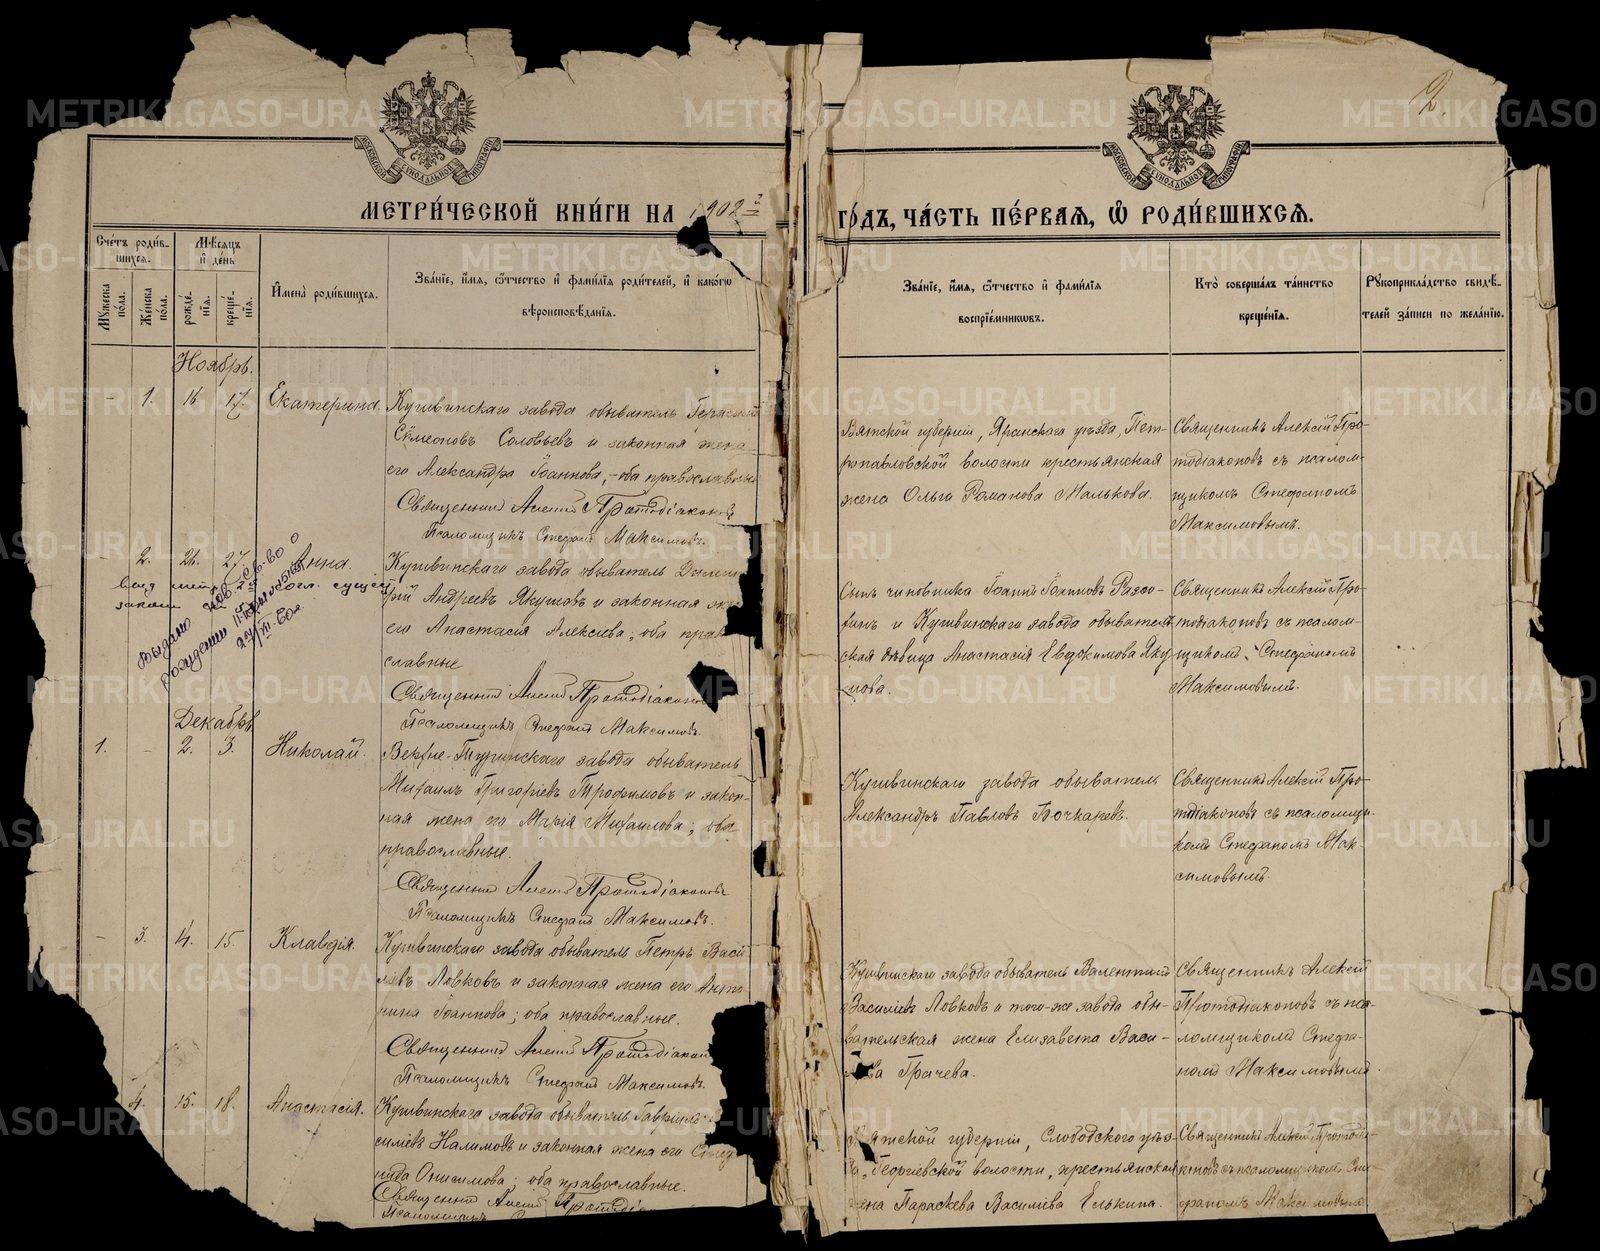 2.
МОСКОВСКОЙ СѴНОДАЛЬНОЙ ТИПОГРАФІИ
МОСКОВСКОЙ СѴНОДАЛЬНОЙ ТИПОГРАФІИ
МЕТРИ́ЧЕСКОЙ КНИ́ГИ НА 1902й
ГО́ДЪ, ЧА́СТЬ ПЕ́РВАЯ, Ѽ РОДИ́ВШИХСЯ.
Сче́тъ роди́в-
шихся.
Мꙋжеска по́ла.
Же́нска по́ла.
Мѣ́сяцъ
и҆ де́нь
рожде́-
нїя.
креще́-
нїя.
И҆мена̀ роди́вшихся.
Зва́нїе, и҆́мя, ѻ҆́тчество и҆ фами́лїя роди́телей, и҆ како́гѡ
вѣроисповѣ́данїя.
Зва́нїе, и҆́мя, ѻ҆́тчество и҆ фами́лїя
воспрїе́мниковъ.
Кто̀ соверша́лъ та́инство
креще́нїя.
Рꙋкоприкла́дство свидѣ́-
телей за́писи по жела́нїю.
Ноябрь.
- 1. 16. 17. Екатерина.
Кушвинскаго завода обыватель Герасимъ
Сѵмеоновъ Соловьевъ и законная жена
его Александра Іоаннова, - оба православные
Священникъ Алексій Протодіаконовъ
Псаломщикъ Стефанъ Максимовъ.
Вятской губерніи, Яранскаго уѣзда, Пет-
ропавловской волости крестьянская
жена Ольга Романова Малькова.
Священникъ Алексій Про-
тодіаконовъ съ псалом-
щикомъ Стефаномъ
Максимовымъ.
- 2. 26. 27. Анна.
Кушвинскаго завода обыватель Дими
рій Андреевъ Якушовъ и законная же
его Анастасія Алексѣева; оба прав
славные
Священникъ Алексій Протодіаконо
Псаломщикъ Стефанъ Максимовъ.
Сынъ чиновника Іоаннъ Іоанновъ
и Кушвинскаго завода обыватель
ская дѣвица Анастасія Евдокимова Яку
Священникъ Алексій Про-
тодіаконовъ съ псалом-
щикомъ Стефаномъ
Максимовымъ.
Выдано пов. св-во о
рождении
24/XI-60г.
Декабрь
1. - 2. 3. Николай.
Верхне-Туринскаго завода обыватель
Михаилъ Григоріевъ Трофимовъ и закон-
ная жена его Марія Михаилова; оба
православные.
Священникъ Алексій Протодіаконовъ
Псаломщикъ Стефанъ Максимовъ.
Кушвинскаго завода обыватель
Александръ Павловъ Бочкаревъ.
Священникъ Алексій Про-
тодіаконовъ съ псаломщи-
комъ Стефаномъ Мак-
симовымъ.
- 3. 14. 15. Клавдія.
Кушвинскаго завода обыватель Петръ Васи
ліевъ Ловковъ и законная жена его Анто-
нина Іоаннова; оба православные.
Священникъ Алексій Протодіакон
Псаломщикъ Стефанъ Максимовъ.
Кушвинскаго завода обыватель Валентинъ
Василіевъ Ловковъ и того-же завода обы-
вательская жена Елизавета Васи-
ева Грачева.
Священникъ Алексій
Протодіаконовъ съ пса-
ломщикомъ Стефа-
номъ Максимовымъ
4. 15. 18. Анастасія.
Кушвинскаго завода обыватель Гавріилъ
силіевъ Налимовъ и законная жена его
нида Онисимова; оба православные.
Священникъ Алексій Протоді
Псаломщикъ
Вятской губерніи, Слободского уѣз-
да, Георгіевской волости, крестьянская
жена Параскева Василіева Елькина.
Священникъ Алексій Протодіа-
коновъ съ псаломщикомъ Сте-
фаномъ Максимовымъ
METRIKI.GASO-URAL.RU